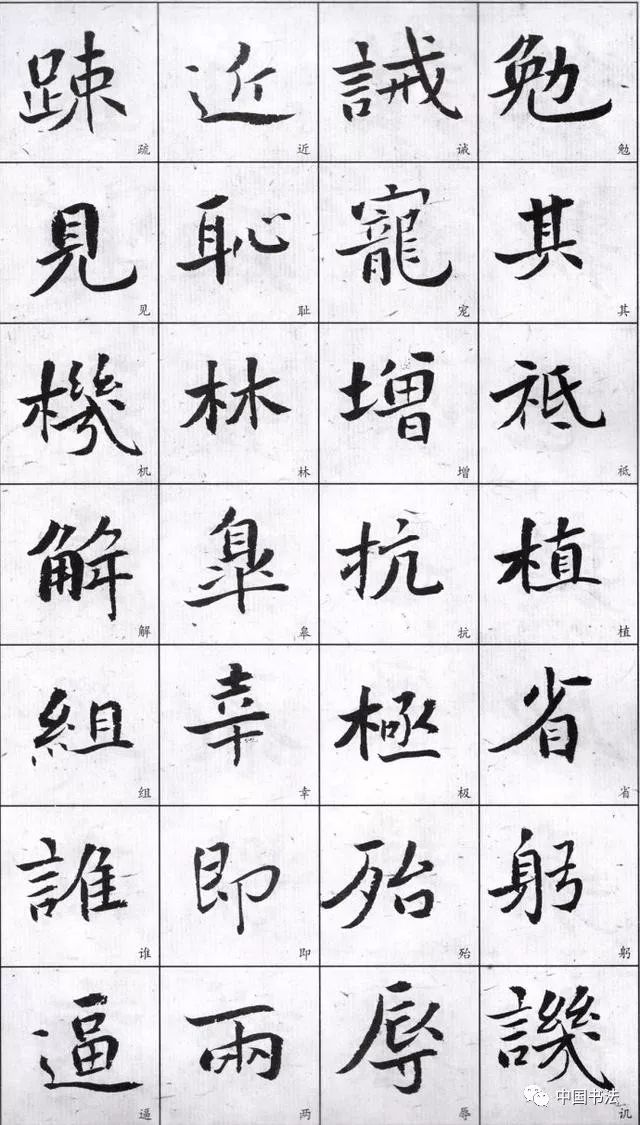 勉其祗植省躬譏
勉其祗植省躬讥
誡寵增抗極殆辱
诫宠增抗极殆辱
近恥林皐幸即兩
近耻林皋幸即两
踈見機解組誰逼
疏见机解组谁逼
中国书法